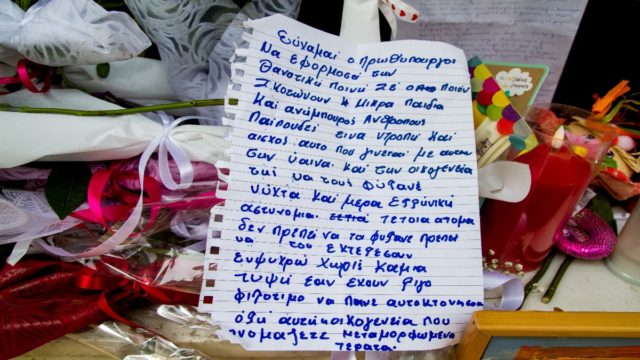 Εύναμαι ο πρωθυπουργοι
Να εφορμοσι των
Θανατικι ποινι Σε οποιον
Σκοτώνουν 4 Μικρα παιδια
Και ανώμπορους Ανθροπους
Παιρουδες εινα ντροπι και
αισχος αυτο που γινεται με αυτον
των υαινα και των οικογενεια
τις να τους φυλανε
νύχτα και μερα Ελλινικι
αστυνομια τετοια ατομα
δεν πρεπει να τα φυλανε πρεπει
να του εκτελεσουν
Ευψυχρω χωρίς καμια
τυψι εαν εχουν λιγο
φιλοτιμο να πανε αυτοκτονησου
όλι αυτι κοικογενεια που
ονομαζετε μεταμορφωμενα
τερατα.